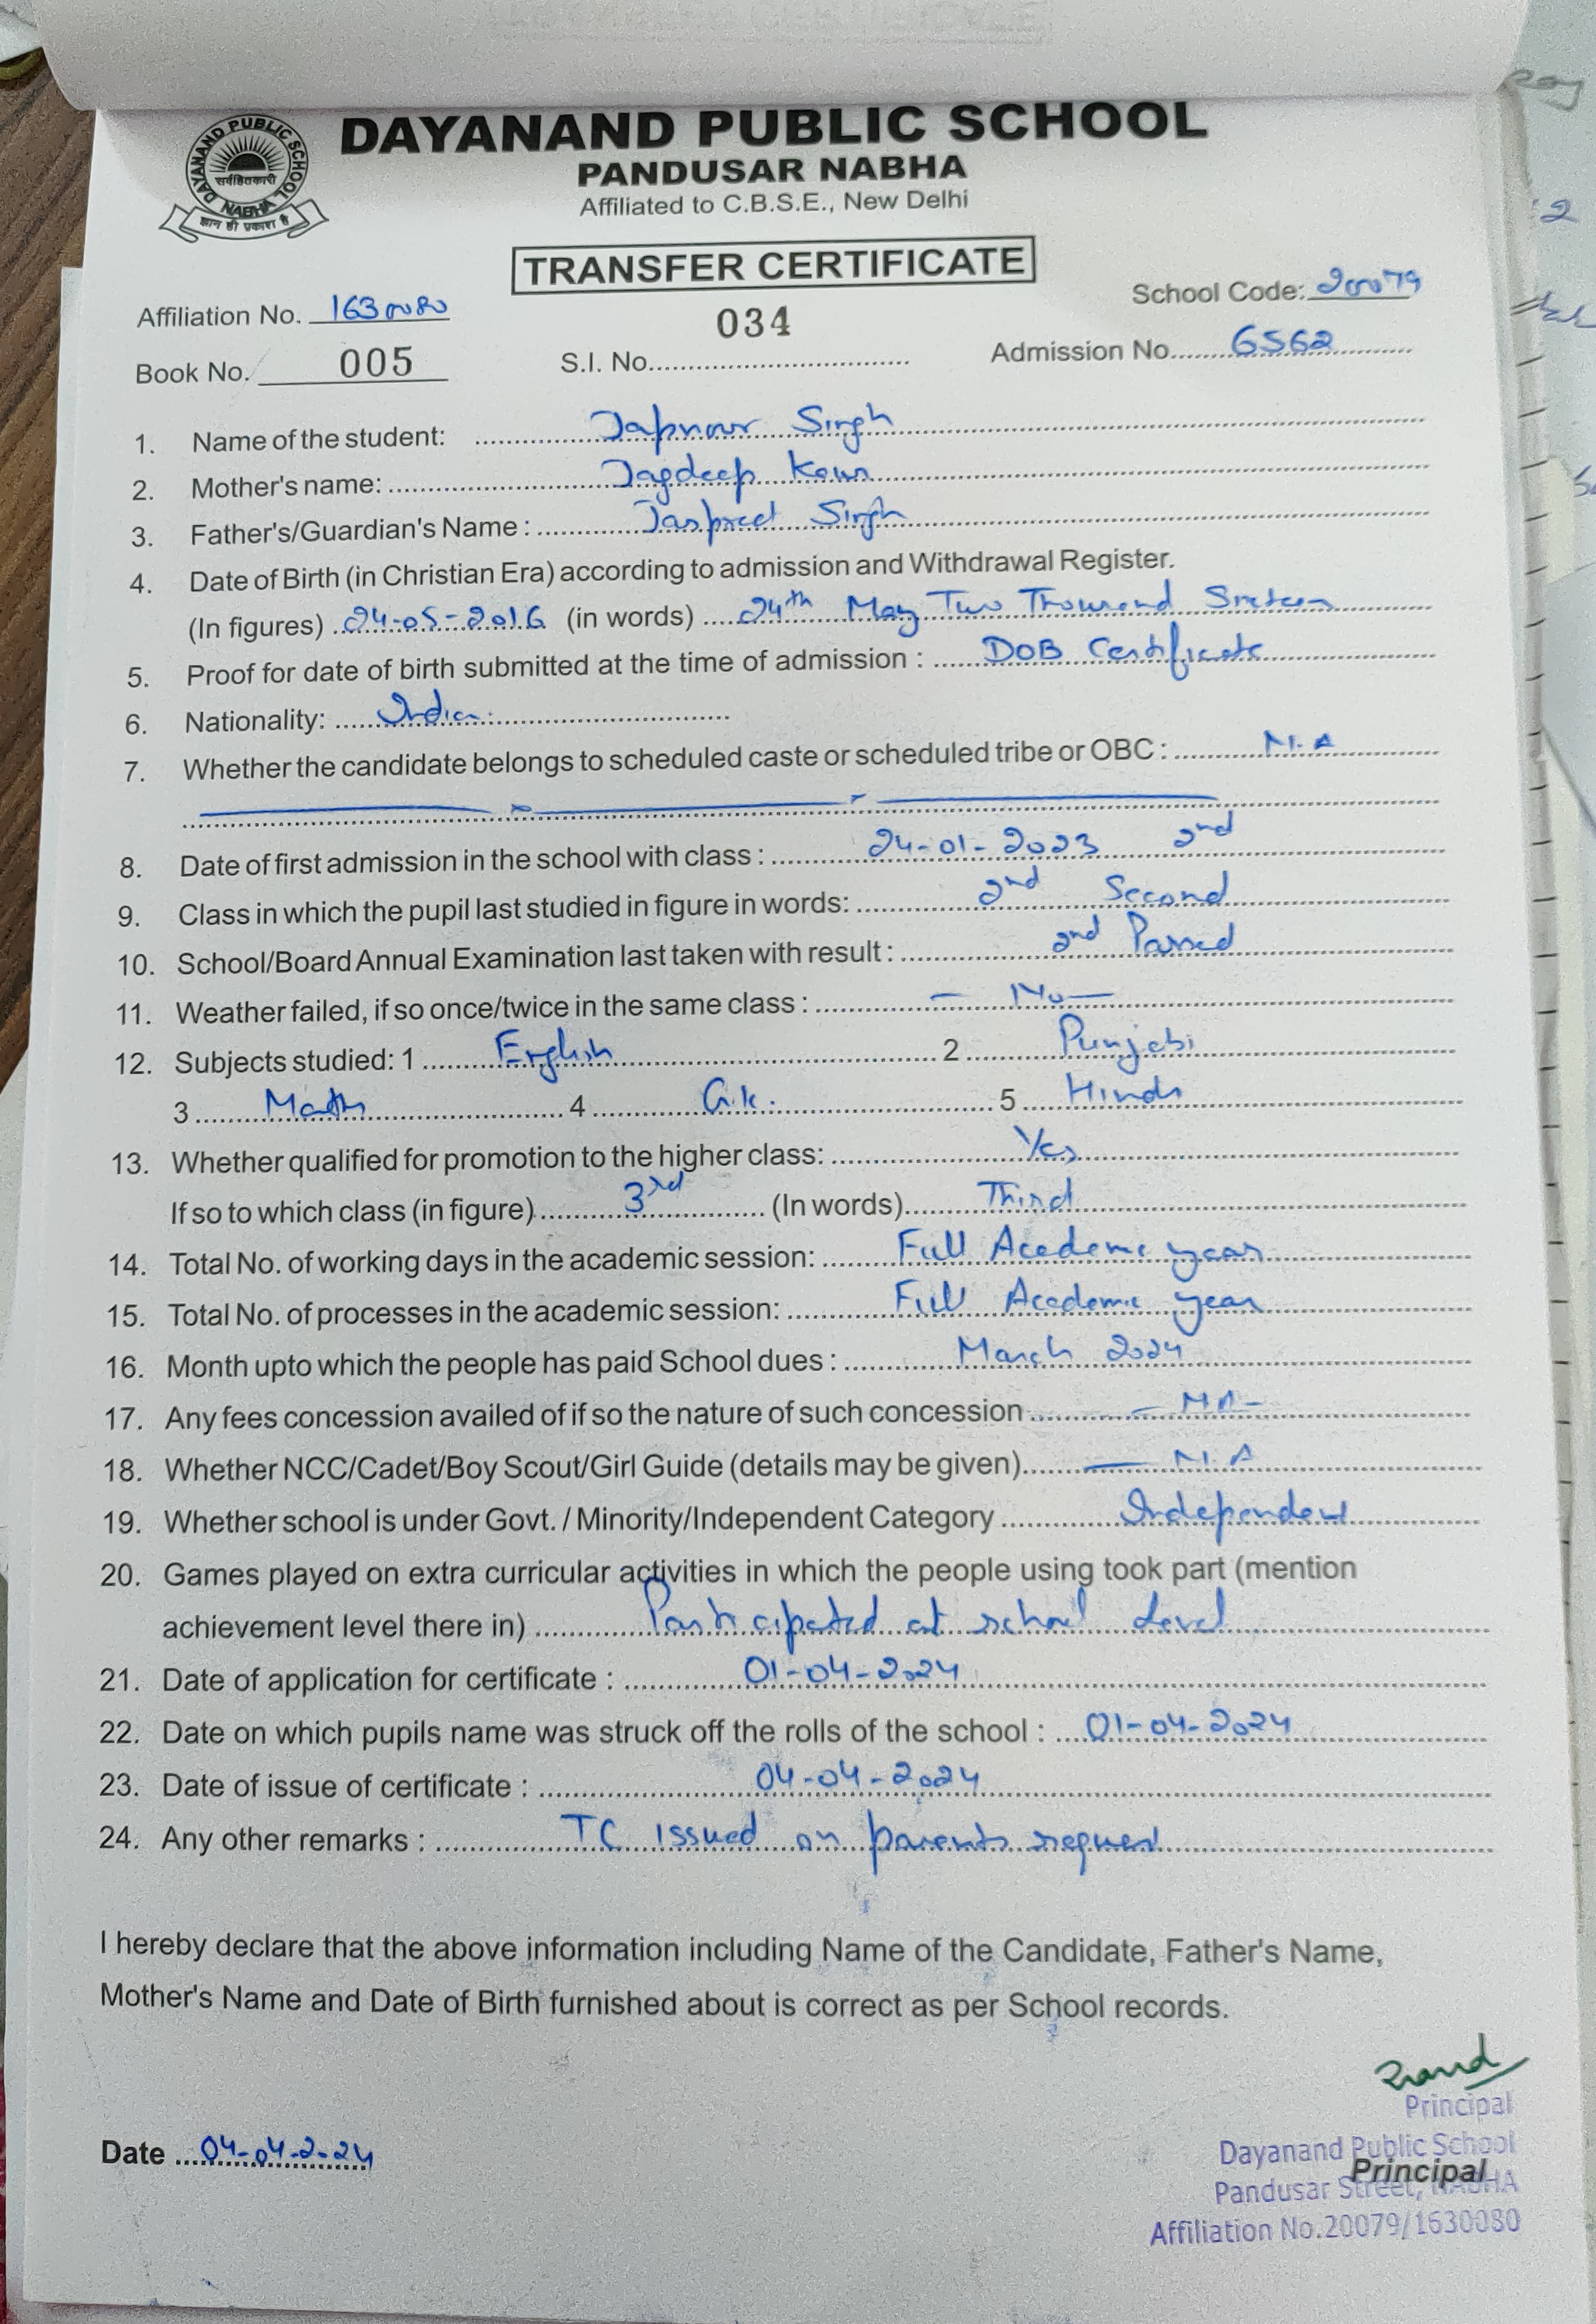 DAYANAND PUBLIC SCHOOL
PANDUSAR NABHA
Affiliated to C.B.S.E., New Delhi
DAYANAND PUBLIC SCHOOL
सर्वहितकारी
NABHA
ज्ञान ही प्रकाश है
TRANSFER CERTIFICATE
Affiliation No. 1630080 School Code: 20079
Book No. 005 S.I. No. 034 Admission No. 6562
1. Name of the student: Japnoor Singh
2. Mother's name: Jagdeep Kaur
3. Father's/Guardian's Name : Jaspreet Singh
4. Date of Birth (in Christian Era) according to admission and Withdrawal Register.
(In figures) 24-05-2016 (in words) 24th May Two Thousand Sixteen
5. Proof for date of birth submitted at the time of admission : DOB Certificate
6. Nationality: Indian
7. Whether the candidate belongs to scheduled caste or scheduled tribe or OBC : N.A
8. Date of first admission in the school with class : 24-01-2023 2nd
9. Class in which the pupil last studied in figure in words: 2nd Second
10. School/Board Annual Examination last taken with result : 2nd Passed
11. Weather failed, if so once/twice in the same class : — No —
12. Subjects studied: 1 English 2 Punjabi
3 Math 4 G.k. 5 Hindi
13. Whether qualified for promotion to the higher class: Yes
If so to which class (in figure) 3rd (In words) Third
14. Total No. of working days in the academic session: Full Academic year
15. Total No. of processes in the academic session: Full Academic year
16. Month upto which the people has paid School dues : March 2024
17. Any fees concession availed of if so the nature of such concession — NA -
18. Whether NCC/Cadet/Boy Scout/Girl Guide (details may be given) — N.A
19. Whether school is under Govt. / Minority/Independent Category Independent
20. Games played on extra curricular activities in which the people using took part (mention
achievement level there in) Participated at school level
21. Date of application for certificate : 01-04-2024
22. Date on which pupils name was struck off the rolls of the school : 01-04-2024
23. Date of issue of certificate : 04-04-2024
24. Any other remarks : TC issued on parents request
I hereby declare that the above information including Name of the Candidate, Father's Name,
Mother's Name and Date of Birth furnished about is correct as per School records.
Date 04-04-2024
Principal
Dayanand Public School
Principal
Pandusar Street, NABHA
Affiliation No.20079/1630080